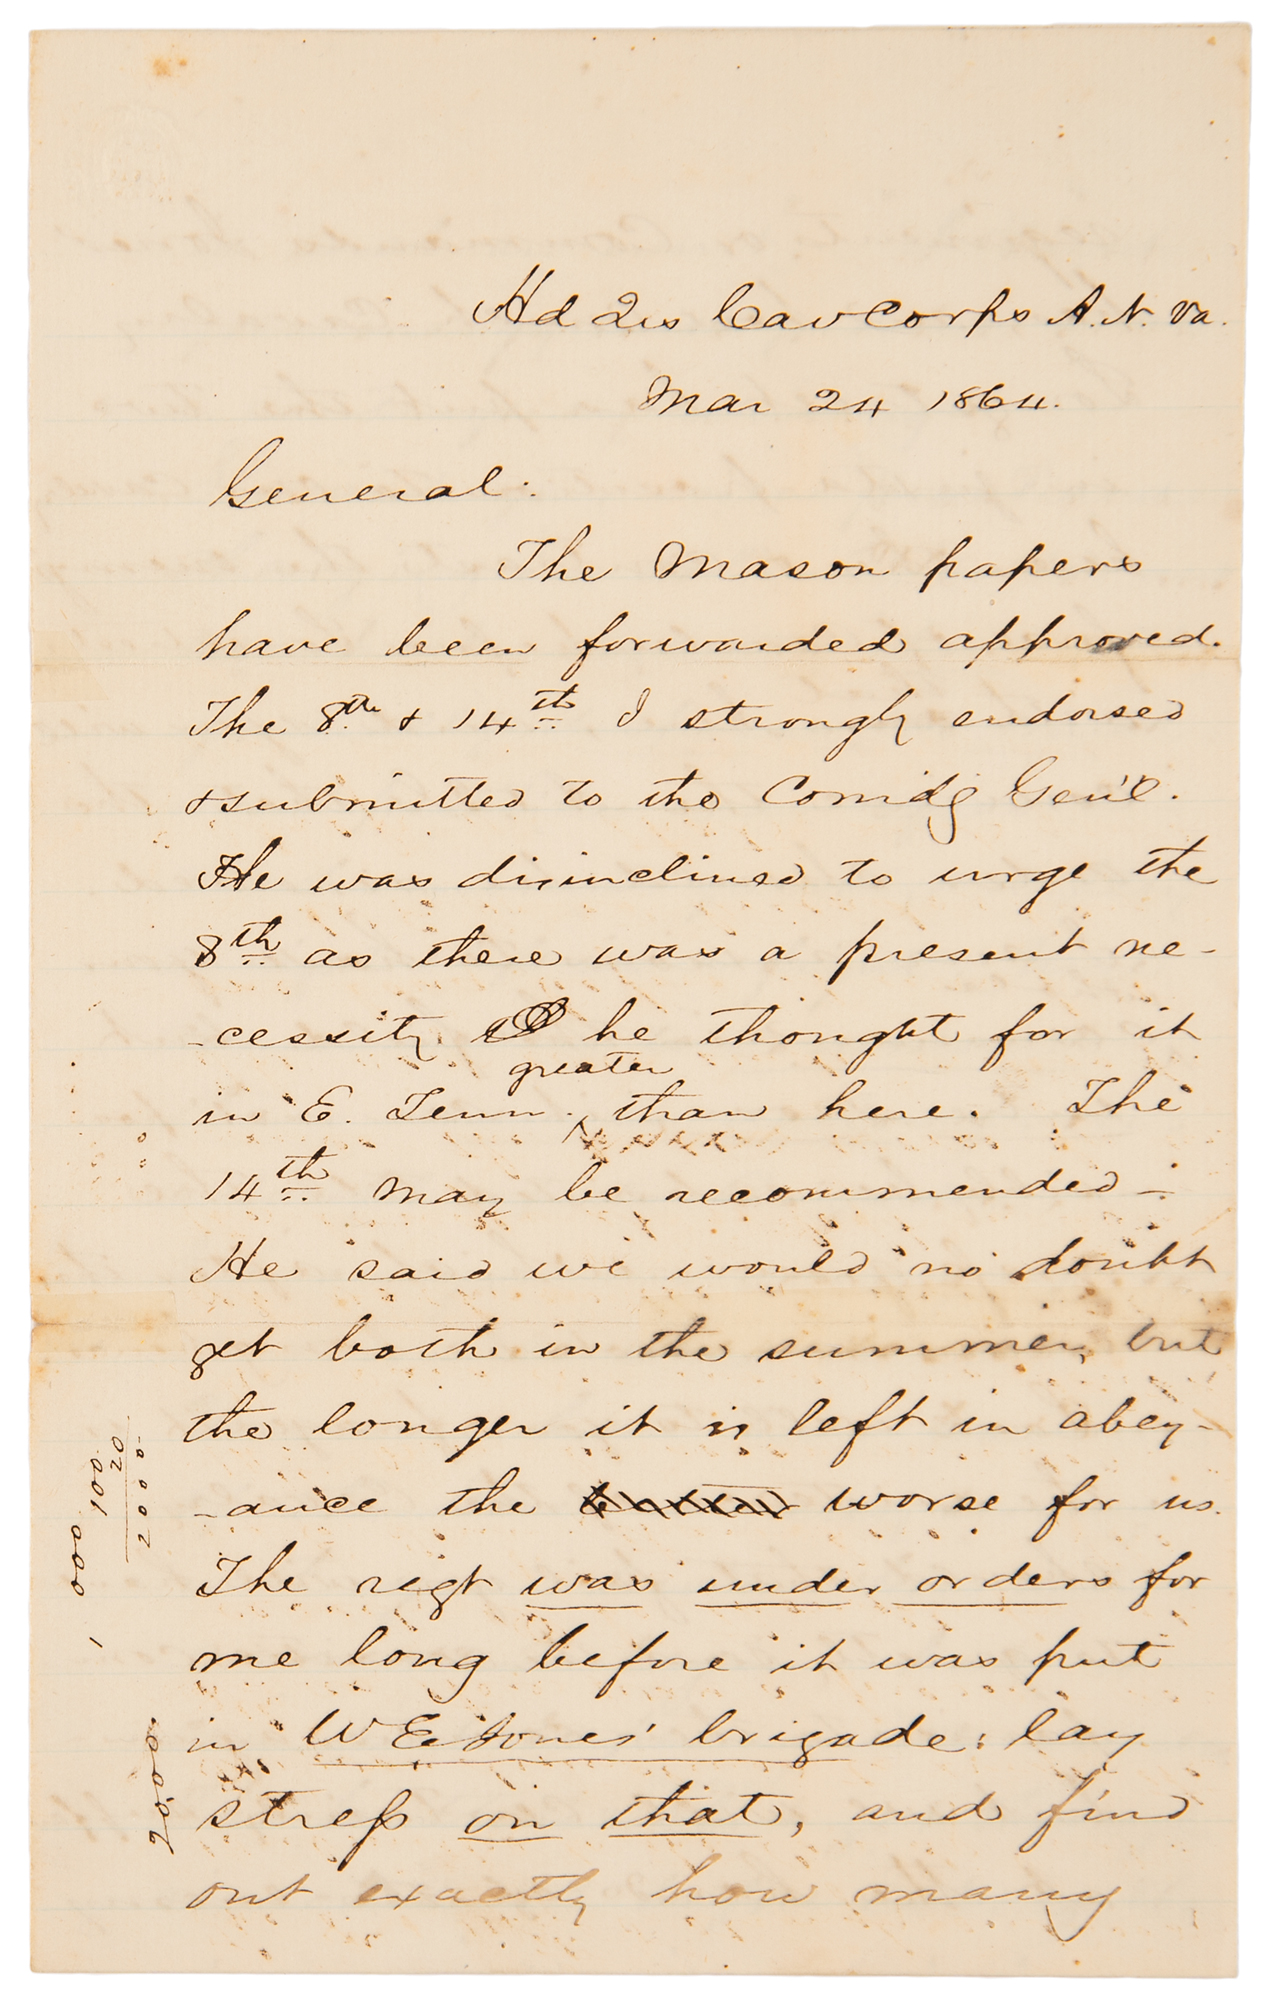 Hd Qrs Cav Corps A. N. Va.
Mar 24 1864.
General:
The Mason papers
have been forwarded approved.
The 8th & 14th I strongly endorsed
& submitted to the Comdg Gen'l.
He was disinclined to urge the
8th as there was a present ne-
-cessity he thought for it
greater
in E. Tenn. ^ than here. The
14th may be recommended -
He said we would no doubt
get both in the summer, but
the longer it is left in abey-
-ance the better worse for us.
The regt was under orders for
me long before it was put
in W E Jones' brigade: lay
stress on that, and find
out exactly how many